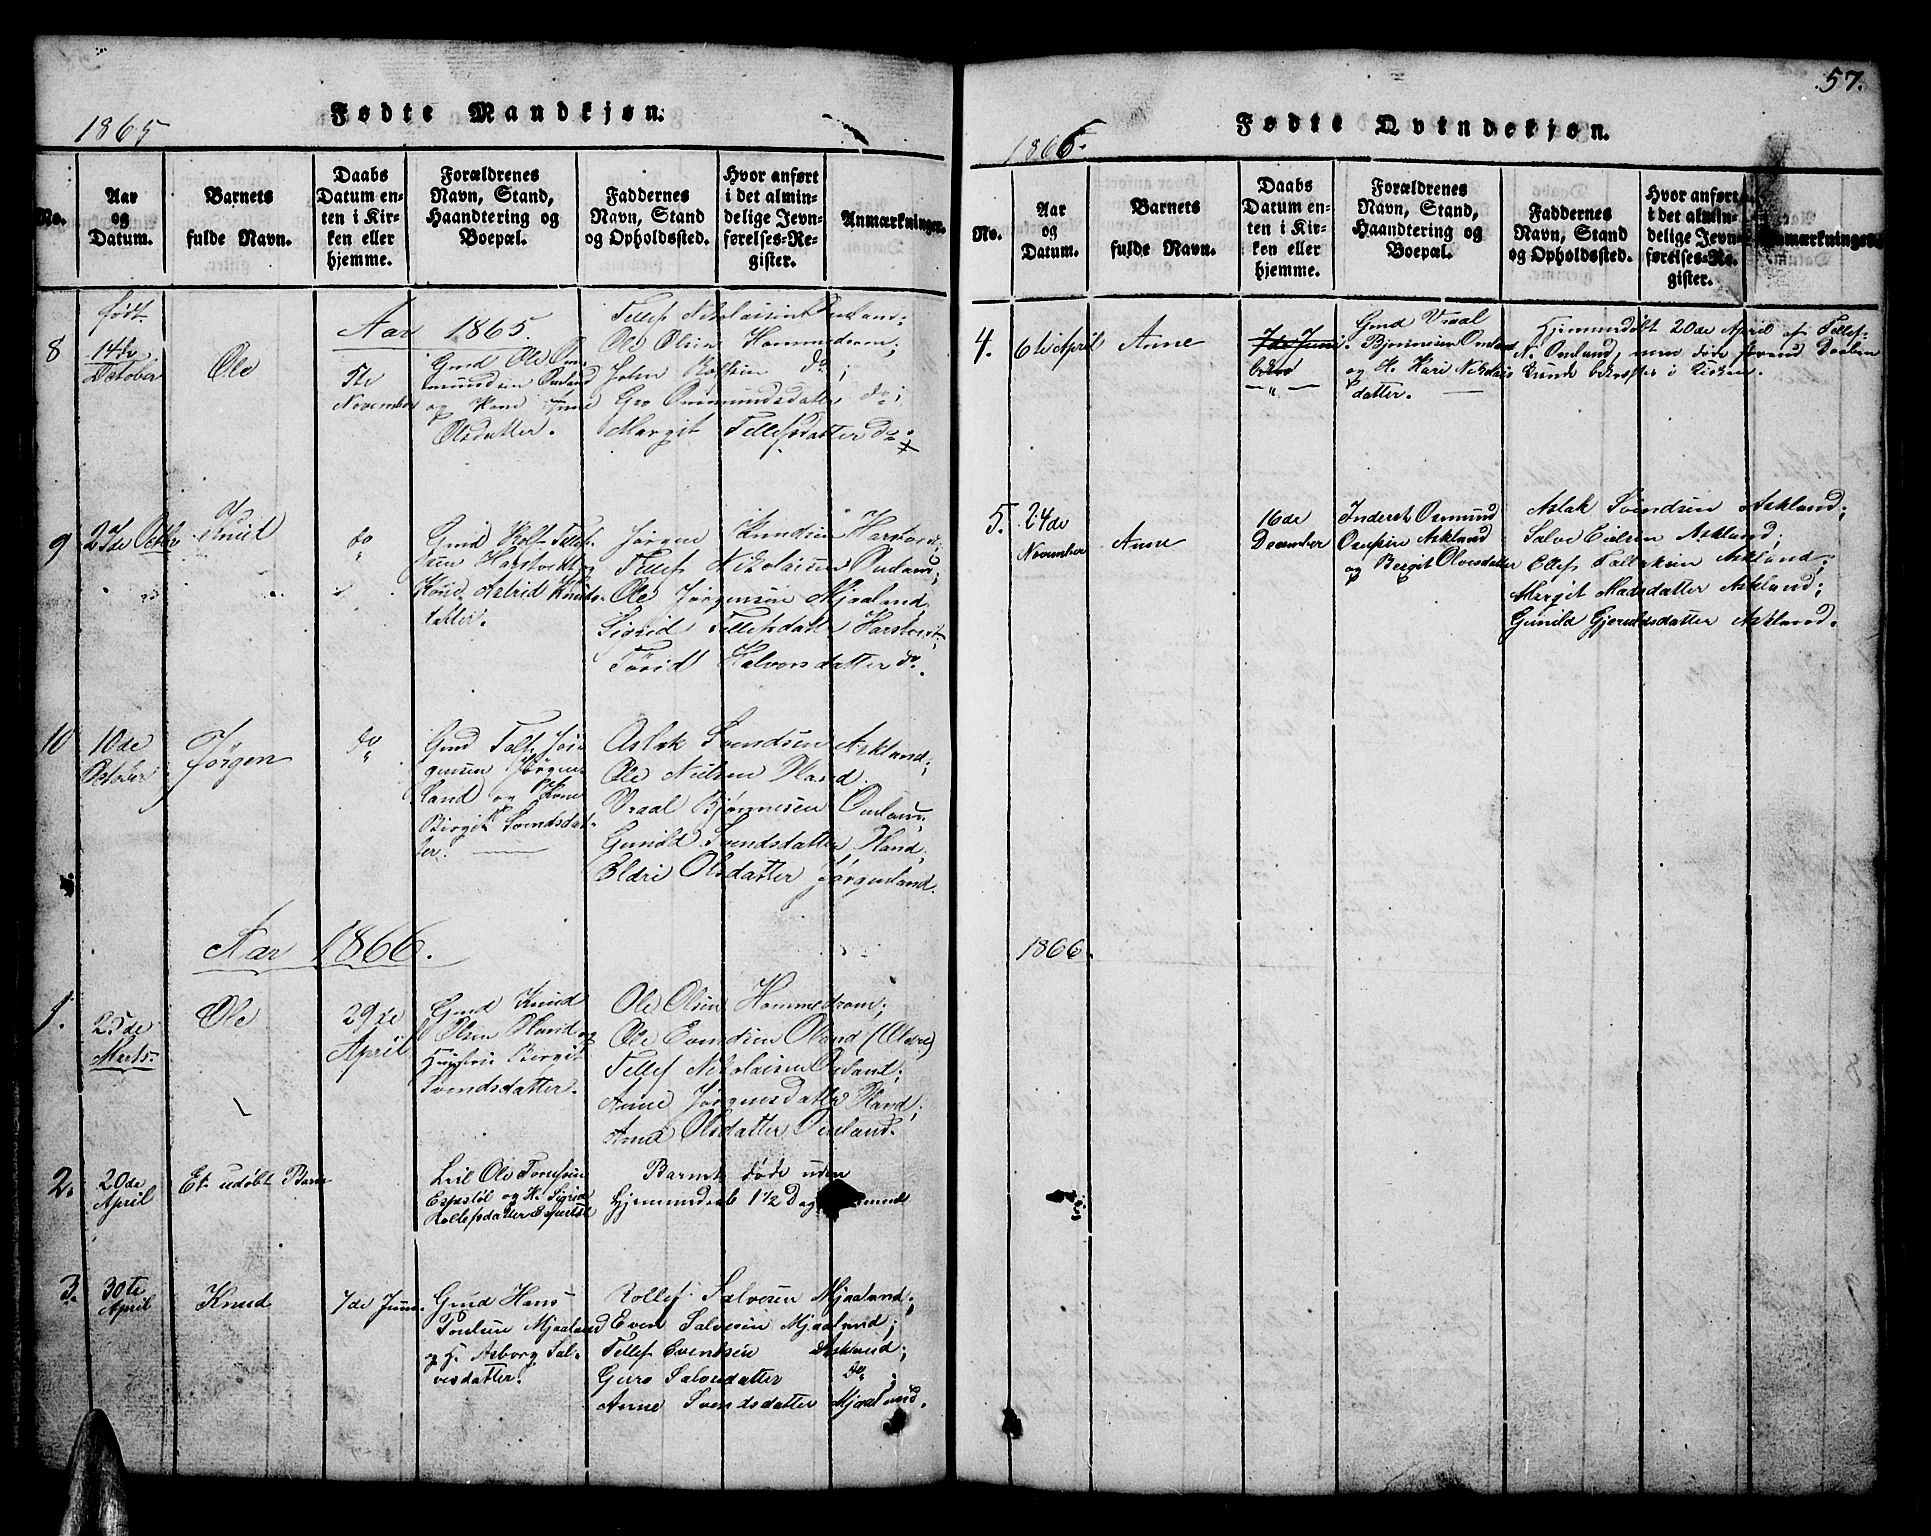 1865
Fødte Mandkjøn.
No.
Aar og Datum.
Barnets fulde Navn.
Daabs Datum enten i Kirken eller hjemme.
Forældrenes Navn, Stand, Haandtering og Boepæl.
Faddernes Navn, Stand og Opholdssted.
Hvor anført i det almindelige Jevnførelses-Register.
Anmærkninger.
født
Aar 1865.
8
14de October
Ole
November
Gmd Ole Om-
mundsen Omland
og Kone
Olsdatter.
Tellef Nikolaisen Omland;
Ole Olsen Hommedrom;
John do;
Gro Ommundsdatter do;
Margit Tellefsdatter do.
9
27de Octbr
Knud
do
Gmd Rolf Tellef-
sen Harstvedt og
Kone Astrid Knuds-
datter.
Jørgen Knudsen Harstvedt;
Tellef Nikolaisen Omland;
Ole Jørgensen Mjaaland;
Sigrid Tellefsdatter Harstvedt;
Torid Halvorsdatter do.
10
10de October
Jørgen
do
Gmd Jør-
gensen Jørgen-
land og Kone
Birgit Svendsdat-
ter.
Aslak Svendsen Askland;
Ole Nielsen Øland.
Vraal Bjørnesen Omland;
Gunild Svendsdatter Øland;
Eldri Olsdatter Jørgenland.
Aar 1866.
1.
25de Marts
Ole
29de April
Gmd Knud
Olsen Øland og
Hustru Birgit
Svendsdatter.
Ole Olsen Hommedrom;
Ole Evendsen Øland (Ældre)
Tellef Nikolaisen Omland;
Anne Jørgensdatter Øland;
Anne Olsdatter Omland.
2.
20de April
Et udøbt Barn
Leil Ole Torjusen
Espestøl og K. Sigrid
Rollefsdatter Espestøl
Barnet døde uden
Hjemmedaab 1 1/2 Dag gammel
3.
30te April
Knud
7de Juni.
Gmd Hans
Mjaaland
og H. Asborg Sal-
vesdatter.
Rollef Salvesen Mjaaland;
Even Salvesen Mjaaland;
Tellef Evensen Askland;
Guro Salvesdatter do;
Anne Svendsdatter Mjaaland.
57.
Fødte Qvindekjøn.
1865.
No.
Aar og Datum.
Barnets fulde Navn.
Daabs Datum enten i Kirken eller hjemme.
Forældrenes Navn, Stand, Haandtering og Boepæl.
Faddernes Navn, Stand og Opholdssted.
Hvor anført i det almindelige Jevnførelses-Register.
Anmærkninger.
4.
6te April
Anne
7de Juni
Gmd Vraal
Bjørnesen Omland
og H. Kari Nikolais
datter.
Hjemmedøbt 20de April af Tellef
N. Omland, men døde forend Daaben
kunde bekræftes i Kirken.
5.
24de November
Anne
16de December
Inderst Osmund
Askland
og Bergit Olvesdatter
Aslak Svendsen Askland;
Salve Eielsen Askland;
Ellef Tallaksen Askland;
Margit Madsdatter Askland;
Gunild Gjeruldsdatter Askland.
1866.